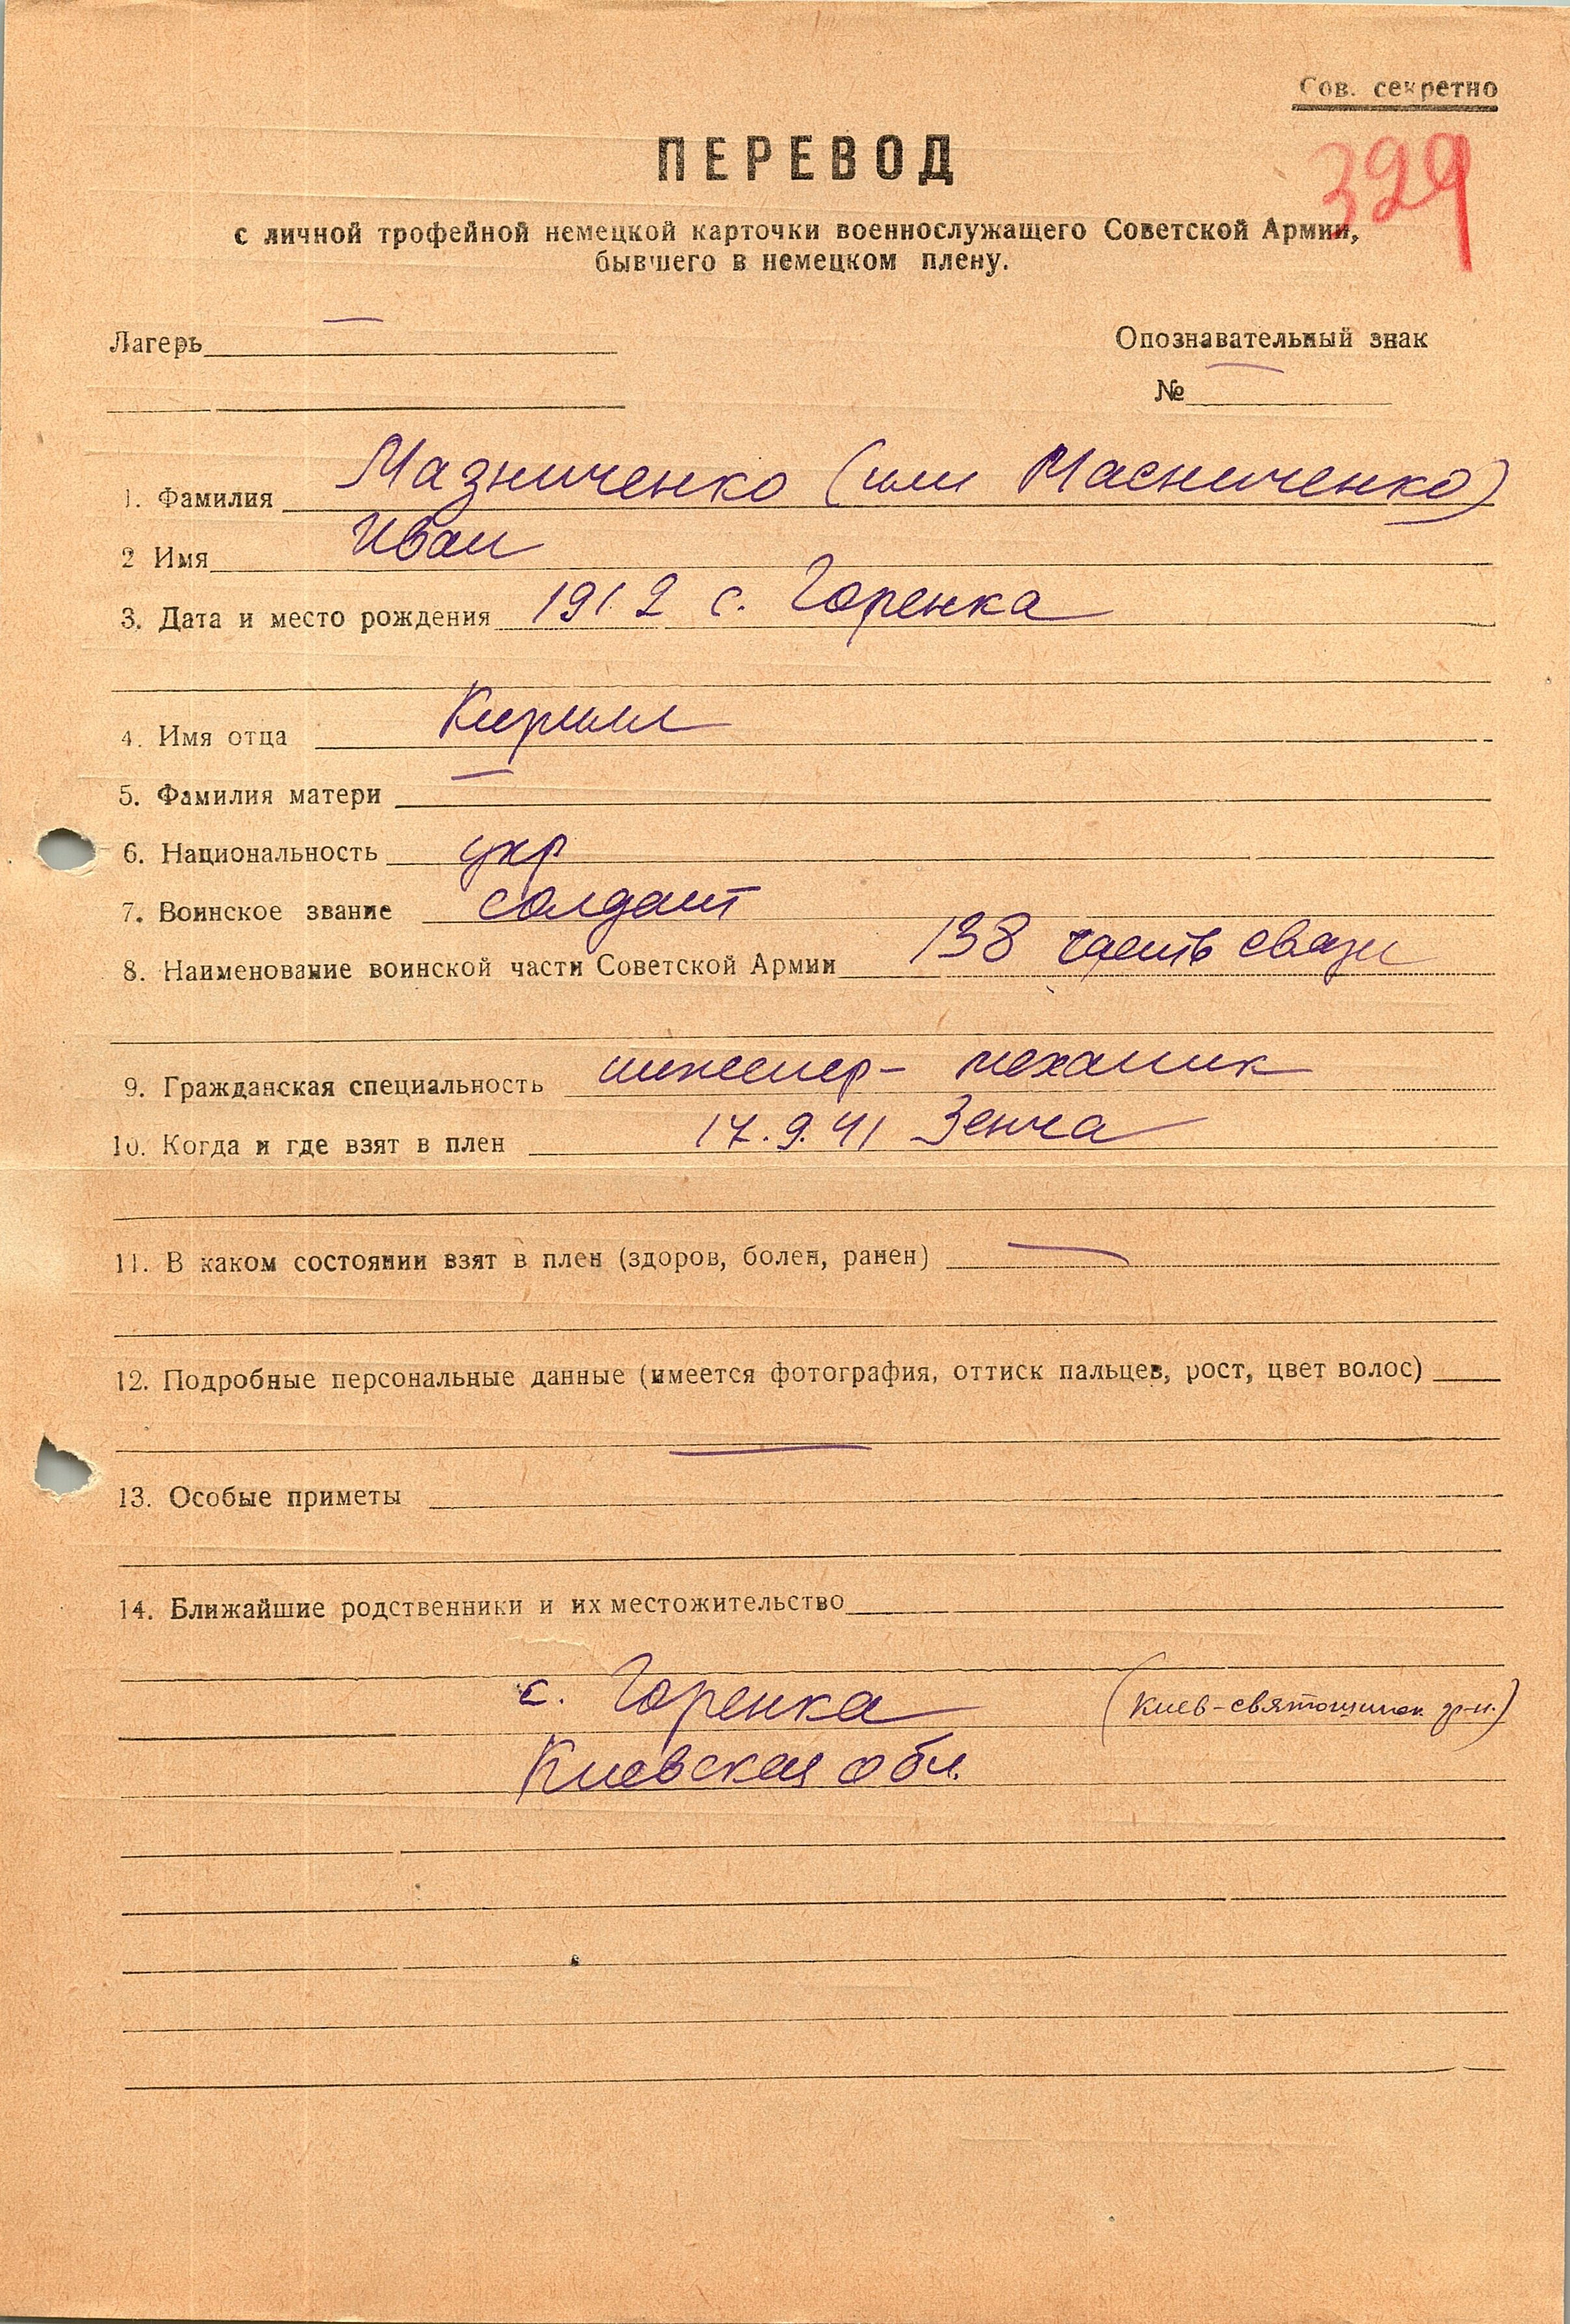 Сов. секретно
329
ПЕРЕВОД
с личной трофейной немецкой карточки военнослужащего Советской Армии,
бывшего в немецком плену.
Лагерь —
Опознавательный знак
№ —
1. Фамилия Мазниченко (или Масниченко)
2 Имя Иван
3. Дата и место рождения 1912 с. Горенка
4. Имя отца Кирилл
5. Фамилия матери —
6. Национальность укр
7. Воинское звание солдат
8. Наименование воинской части Советской Армии 138 часть связи
9. Гражданская специальность инженер-механик
10. Когда и где взят в плен 17.9.41 Зенча
11. В каком состоянии взят в плен (здоров, болен, ранен) —
12. Подробные персональные данные (имеется фотография, оттиск пальцев, рост, цвет волос)
—
13. Особые приметы
14. Ближайшие родственники и их местожительство
с. Горенка (Киев-святошинск. р-н.)
Киевская обл.